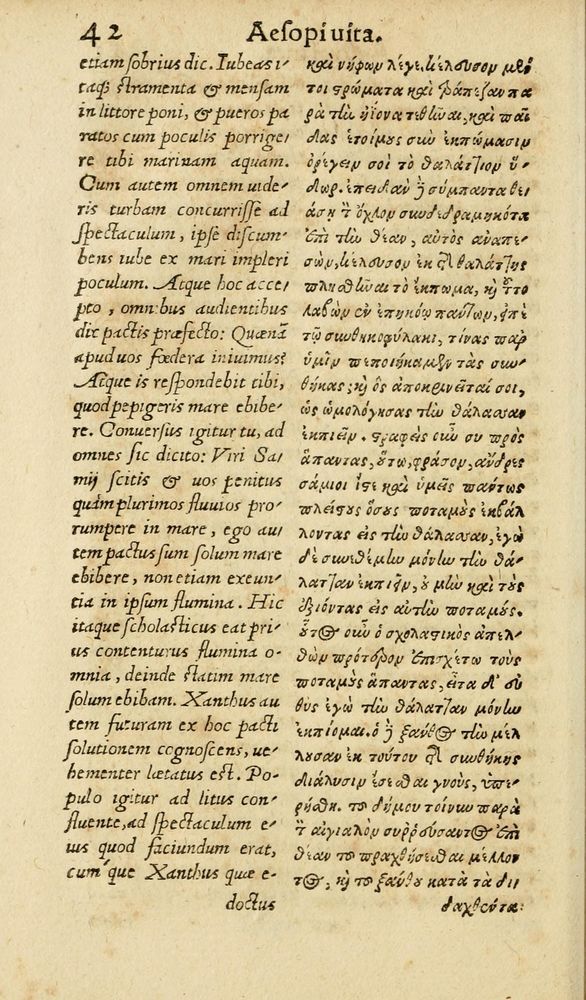 42 Aesopi vita.
etiam sobrius dic. Iubeas i-
taq; stramenta & mensam
in littore poni, & pueros pa
ratos cum poculis porrige-
re tibi marinam aquam.
Cum autem omnem vide-
ris turbam concurrisse ad
spectaculum, ipse discum-
bens iube ex mari impleri
poculum. Atque hoc acce-
pto, omnibus audientibus
dic pactis præfecto: Quænã
apud uos fœdera iniuimus?
Atque is respondebit tibi,
quod pepigeris mare ebibe-
re. Conuersus igitur tu, ad
omnes sic dicito: Viri Sa-
mij scitis & uos penitus
quàm plurimos fluuios pro-
rumpere in mare, ego au-
tem pactus sum solum mare
ebibere, non etiam exeun-
tia in ipsum flumina. Hic
itaque scholasticus eat pri-
us contenturus flumina o-
mnia, deinde statim mare
solum ebibam. Xanthus au
tem futuram ex hoc pacti
solutionem cognoscens, ue-
hementer lætatus est. Po-
pulo igitur ad litus con-
fluente, ad spectaculum e-
ius quod faciundum erat,
cumque Xanthus quæ e-
doctus
καὶ νήφων λέγε. κέλευσον μέν
τοι στρώματα καὶ τράπεζαν πα
ρὰ τὴν ἠϊόνα τεθῆναι, καὶ παῖ
δας ἑτοίμους σὺν ἐκπώμασιν
ὀρέγειν σοι τὸ θαλάττιον ὕ-
δωρ. ἐπειδὰν δὲ σύμπαντα θε-
άσῃ τὸν ὄχλον συνδεδραμηκότα
ἐπὶ τὴν θέαν, αὐτὸς ἀναπε-
σὼν, κέλευσον ἐκ τῆς θαλάττης
πλησθῆναι τὸ ἔκπωμα, καὶ τοῦτο
λαβὼν ἐν ἐπηκόῳ πάντων, εἰπὲ
τῷ συνθηκοφύλακι, τίνας παρ
ὑμῖν πεποιήκαμεν τὰς συν-
θήκας; καὶ ὃς ἀποκρινεῖταί σοι,
ὡς ὡμολόγησας τὴν θάλασσαν
ἐκπιεῖν. στραφεὶς οὖν συ πρὸς
ἅπαντας, οὕτω φράσον, ἄνδρες
σάμιοι ἴστε καὶ ὑμεῖς πάντως
πλείστους ὅσους ποταμοὺς ἐκβάλ
λοντας εἰς τὴν θάλασσαν, ἐγὼ
δὲ συνεθέμην μόνην τὴν θά-
λατταν ἐκπιεῖν, οὐ μὴν καὶ τοὺς
ἐξιόντας εἰς αὐτὴν ποταμούς.
οὗτος οὖν ὁ σχολαστικὸς ἀπελ-
θὼν πρότερον ἐπισχέτω τοὺς
ποταμοὺς ἅπαντας, εἶτα δ' εὐ
θὺς ἐγὼ τὴν θάλατταν μόνην
ἐκπίομαι. ὁ δὲ ξάνθος τὴν μέλ
λουσαν ἐκ τούτου τῆς συνθήκης
διάλυσιν ἔσεσθαι γνοὺς, ὑπε-
ρήσθη. τοῦ δήμου τοίνυν παρὰ
τὸν αἰγιαλὸν συῤῥεύσαντος ἐπὶ
θέαν τοῦ πραχθήσεσθαι μέλλον
τος, καὶ τοῦ ξάνθου κατὰ τὰ δι
δαχθέντα